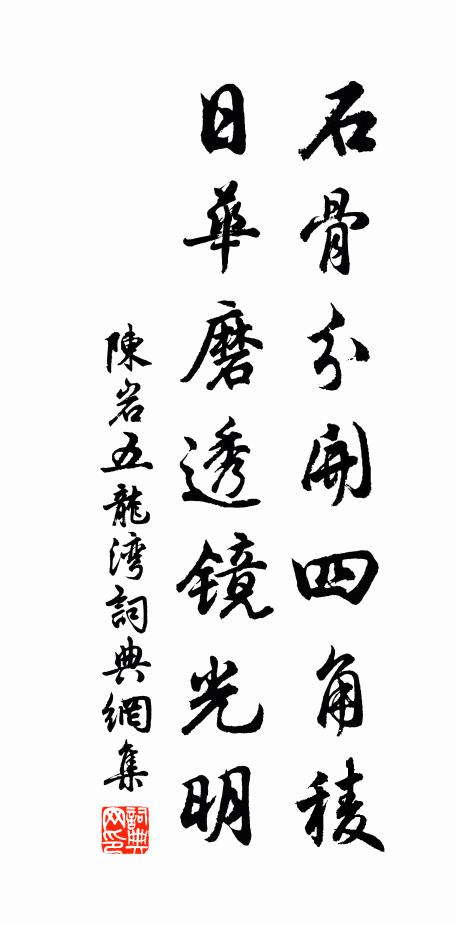 石骨分開四角稜
日華磨透鏡光明
陳岩五龍灣詞典網集
詞典网印